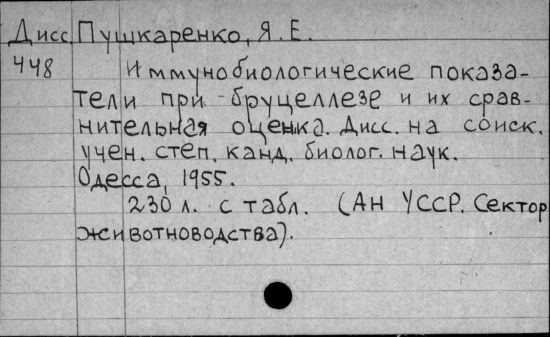 Дисс. Пушкаренко, Я. Е.
448 Иммунобиологические показа-
тели при бруцеллезе и их срав-
нительная оценка. Дисс. на соиск.
учен. степ. канд. биолог. наук.
Одесса, 1955.
230 л. с табл. (АН УССР. Сектор
животноводства).